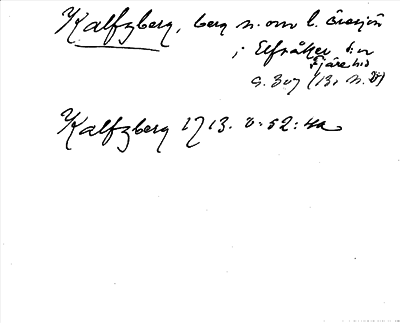 Kalfzberg, berg n. om l. Öresjön
i Elfsåker s:n
Fjäre hd
G. 307 (13, n. )
Kalfzberg 1713. O. 52:4a